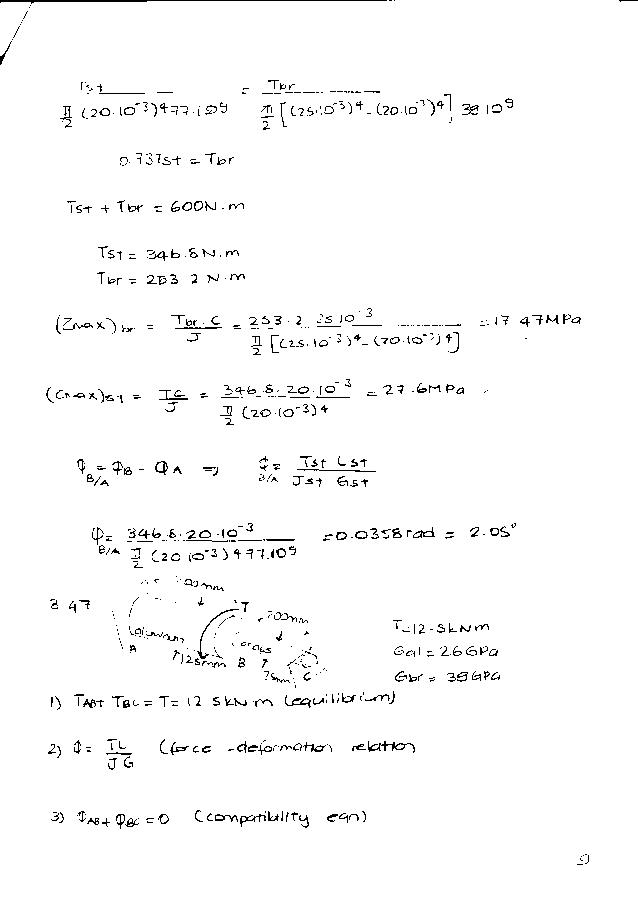 Tst / (π/2 (20·10⁻³)⁴ 77·10⁹) = Tbr / (π/2 [(25·10⁻³)⁴ - (20·10⁻³)⁴] 39 10⁹)
0.737st = Tbr
Tst + Tbr = 600N.m
Tst = 346.8N.m
Tbr = 253 2 N.m
(Zmax)br = Tbr.C / J = 253·2 25 10⁻³ / (π/2 [(25·10⁻³)⁴ - (20·10⁻³)⁴]) = 17 47MPa
(Cmax)st = TC / J = 346.8·20·10⁻³ / (π/2 (20·10⁻³)⁴) = 27.6MPa
φB/A = φB - φA ⇒ φB/A = Tst Lst / Jst Gst
φB/A = 346.8·20·10⁻³ / (π/2 (20 10⁻³)⁴ 77.10⁹) = 0.0358rad = 2.05°
3 47
T
200mm
A
125mm B
75mm C
T=12.5kNm
Gal = 26GPa
Gbr = 39GPa
1) TAB+ TBC = T = 12 5kN m (equilibrium)
2) φ = TL / JG (force-deformation relation
3) φAB+ φBC = 0 (compatibility eqn)